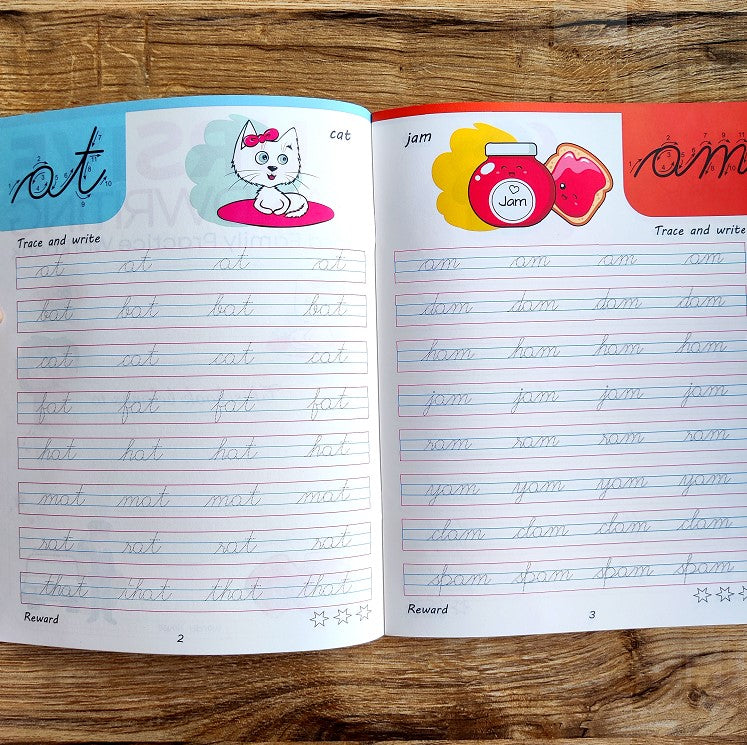 at
cat
Trace and write
at at at at
bat bat bat bat
cat cat cat cat
fat fat fat fat
hat hat hat hat
mat mat mat mat
rat rat rat rat
that that that that
Reward
2
jam
Jam
am
Trace and write
am am am am
dam dam dam dam
ham ham ham ham
jam jam jam jam
ram ram ram ram
yam yam yam yam
clam clam clam clam
spam spam spam spam
Reward
3